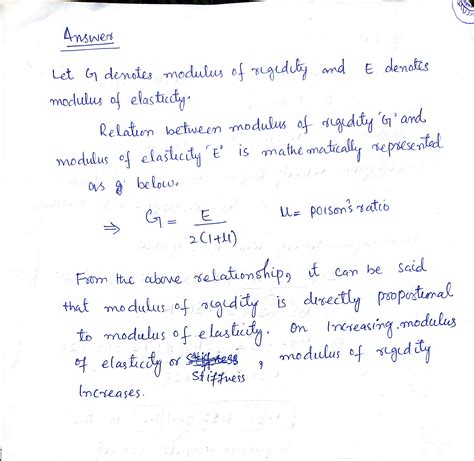 Answer
Let G denotes modulus of regedity and E denotes
modulus of elasticity.
Relation between modulus of rugedity 'G' and
modulus of elasticity 'E' is mathematically represented
as g below.
⇒ G = E / 2(1+μ) μ = poison's ratio
From the above relationship, it can be said
that modulus of regedity is directly proportional
to modulus of elasticity. On Increasing modulus
of elasticity or stiffness, modulus of regedity
Stiffness
Increases.